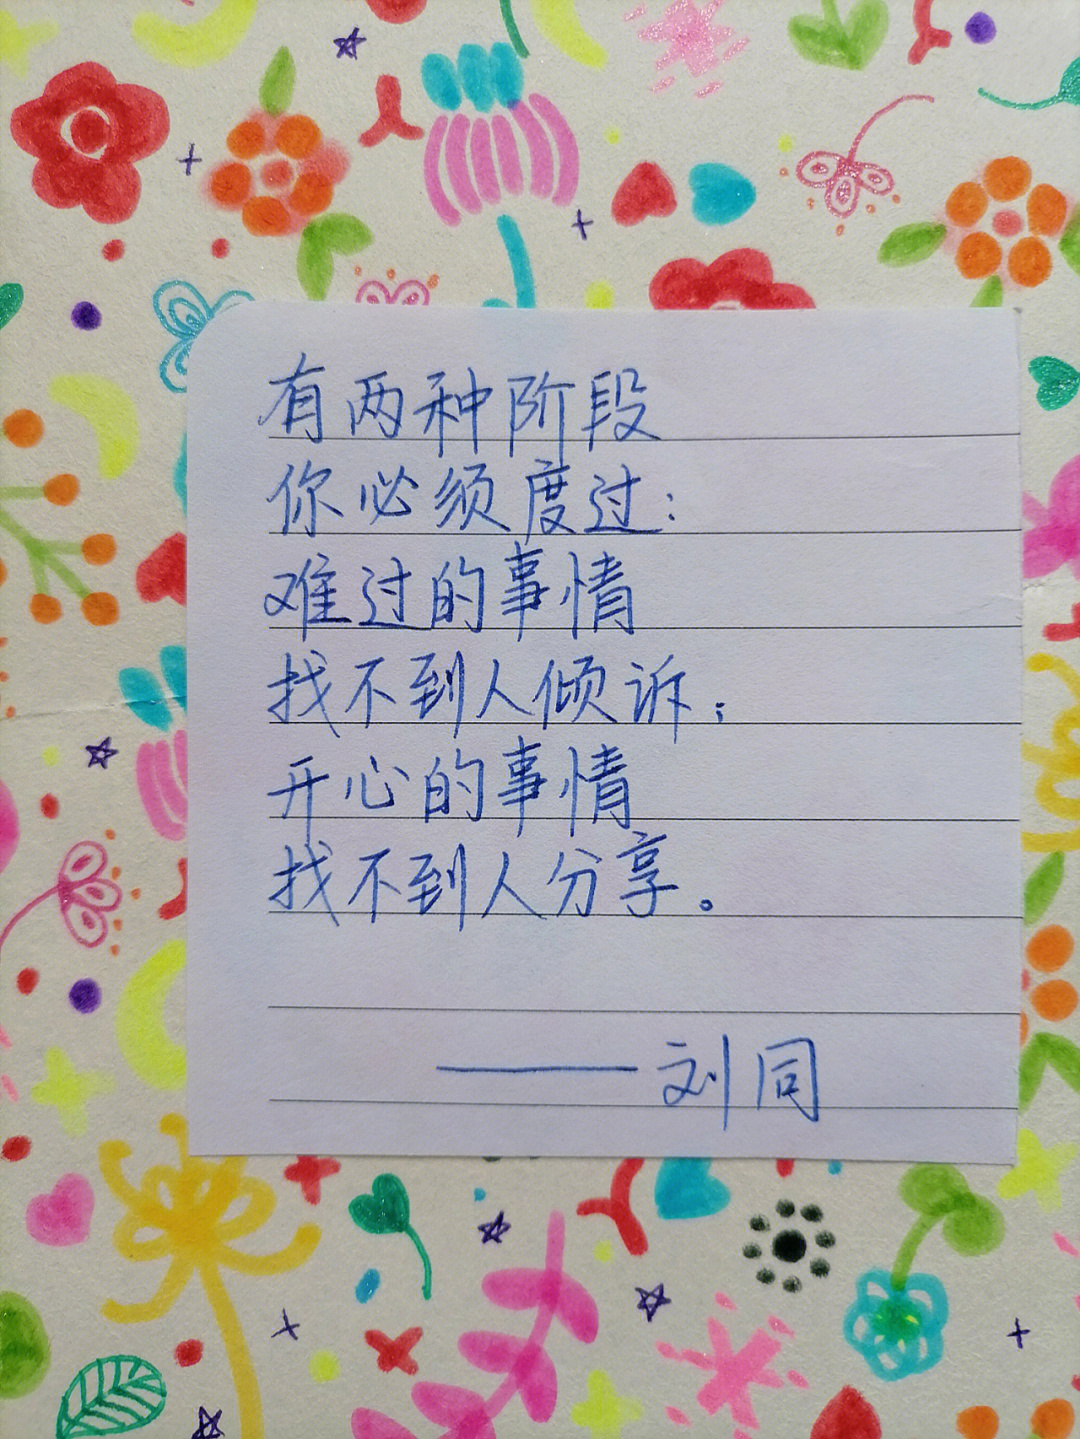 有两种阶段
你必须度过：
难过的事情
找不到人倾诉；
开心的事情
找不到人分享。
——刘同